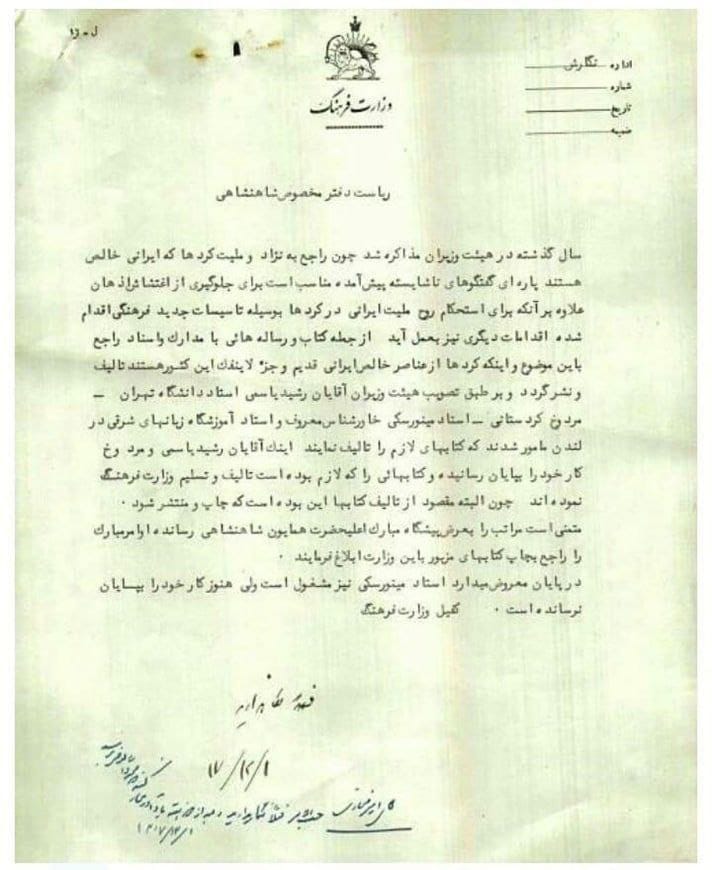 ل-ز۱
اداره نگارش
شماره
تاریخ
ضمیمه
وزارت فرهنگ
ریاست دفتر مخصوص شاهنشاهی
سال گذشته در هیئت وزیران مذاکره شد چون راجع به نژاد و ملیت کرد ها که ایرانی خالص
هستند پاره ای گفتگوهای ناشایسته پیش آمده مناسب است برای جلوگیری از اغتشاش اذهان
علاوه بر آنکه برای استحکام روح ملیت ایرانی در کردها بوسیله تاسیسات جدید فرهنگی اقدام
شده اقدامات دیگری نیز بعمل آید از جمله کتاب و رساله هائی با مدارك و اسناد راجع
باین موضوع و اینکه کرد ها از عناصر خالص ایرانی قدیم و جزء لاینفك این کشور هستند تالیف
و نشر گردد و بر طبق تصویب هیئت وزیران آقایان رشید یاسمی استاد دانشگاه تهران -
مردوخ کردستانی - استاد مینورسکی خاورشناس معروف و استاد آموزشگاه زبانهای شرقی در
لندن مامور شدند که کتابهای لازم را تالیف نمایند اینك آقایان رشید یاسمی و مردوخ
کار خود را بپایان رسانیده و کتابهائی را که لازم بوده است تالیف و تسلیم وزارت فرهنگ
نموده اند چون البته مقصود از تالیف کتابها این بوده است که چاپ و منتشر شود .
متمنی است مراتب را بعرض پیشگاه مبارك اعلیحضرت همایون شاهنشاهی رسانده اوامر مبارك
را راجع بچاپ کتابهای مزبور باین وزارت ابلاغ فرمایند .
در پایان معروض میدارد استاد مینورسکی نیز مشغول است ولی هنوز کار خود را بپایان
نرسانده است . کفیل وزارت فرهنگ
۱۷/۱۲/۱
۱۳۱۷/۱۲/۱